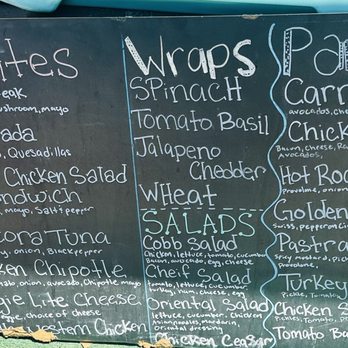 ites
eak
ushroom, mayo
ada
, Quesadillas
Chicken Salad
ndwich
, mayo, Salt & pepper
ora Tuna
y, onion, Blackpepper
ken Chipotle
ato, onion, avocado, Chipotle mayo
gie Lite Cheese
, choice of cheese
western Chicken
Wraps
SPinacH
Tomato Basil
Jalapeno
Chedder
WHeat
SALADS
Cobb Salad
Chicken, lettuce, tomato, cucumber
Bacon, avocado, egg, cheese
Cheif Salad
lettuce, tomato, cucumber
Turkey, Ham, cheese, egg
Oriental Salad
lettuce, cucumber, Chicken
Asian noodles, Mandarin
Oriental dressing
Chicken Ceasar
Pa
Carn
avocados, che
Chick
Bacon, cheese, Ra
Avocados,
Hot Roa
Provolone, onion
Golden
Swiss, pepperonci
Pastra
Spicy mustard
Provolone,
Turkey
Pickle, Tomato,
Chicken S
Pickles, Tomato
Tomato Ba